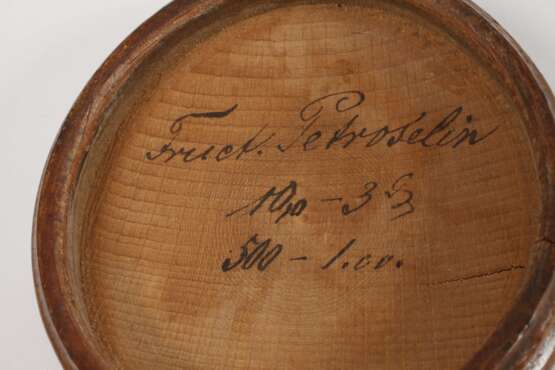 Fruct. Petroselin
10,0 – 3
500 – 1.00.